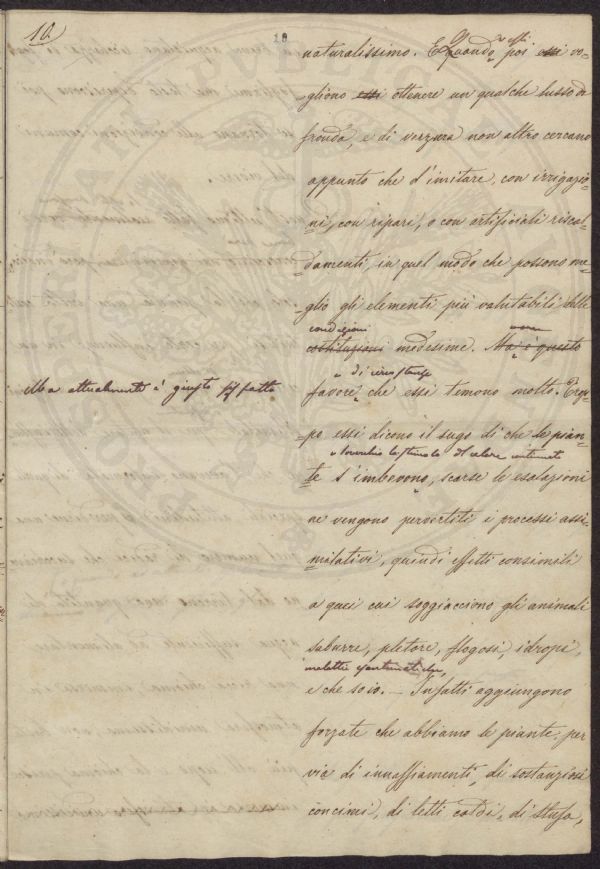 10.
10
naturalissimo. E Quando essi poi essi vo-
-gliono essi ottenere un qualche lusso di
fronda, e di verzura non altro cercano
appunto che d'imitare, con irrigazio-
ni, con ripari, o con artificiali riscal-
damenti, in quel modo che possono me-
glio gli elementi più valutabili delle
condizioni
costituzioni medesime. Ma è questo
Ma attualmente è giusto sif fatto
di circostanze
favore che essi temono molto.
-po essi dicono il sugo di che le pian-
soverchio lo stimolo del calore continuato
te s'imbevono, scarse le esalazioni
ne vengono pervertiti i processi assi-
milativi, quindi effetti consimili
a quei cui soggiacciono gli animali
saburre, pletore, flogosi, idropi,
malattie esantematiche,
e che so io. — Infatti aggiungono
forzate che abbiamo le piante, per
via di innaffiamenti, di sostanziosi
concimi, di letti caldi, di stufa,